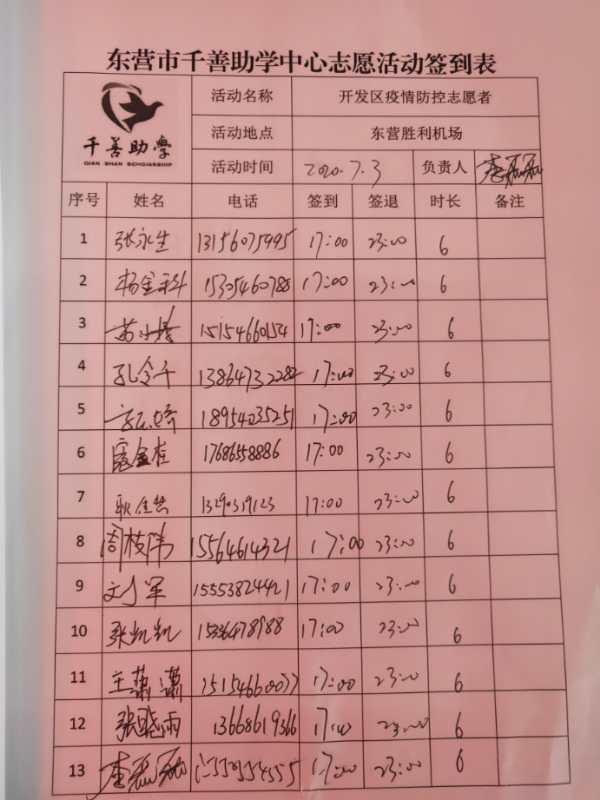 东营市千善助学中心志愿活动签到表
千善助学
QIAN SHAN SCHOLARSHIP
活动名称 开发区疫情防控志愿者
活动地点 东营胜利机场
活动时间 2020.7.3 负责人 李磊磊
序号 姓名 电话 签到 签退 时长 备注
1 张永生 13156075995 17:00 23:00 6
2 杨金科 15305460788 17:00 23:00 6
3 15154660154 17:00 23:00 6
4 孔令千 13864732282 17:00 23:00 6
5 18954035251 17:00 23:00 6
6 寇金桂 17686558886 17:00 23:00 6
7 17:00 23:00 6
8 周枝伟 15564614321 17:00 23:00 6
9 刘军 15553824421 17:00 23:00 6
10 张凯凯 17:00 23:00 6
11 王萧潇 15154660077 17:00 23:00 6
12 张晓雨 13668619366 17:00 23:00 6
13 李磊磊 17:00 23:00 6